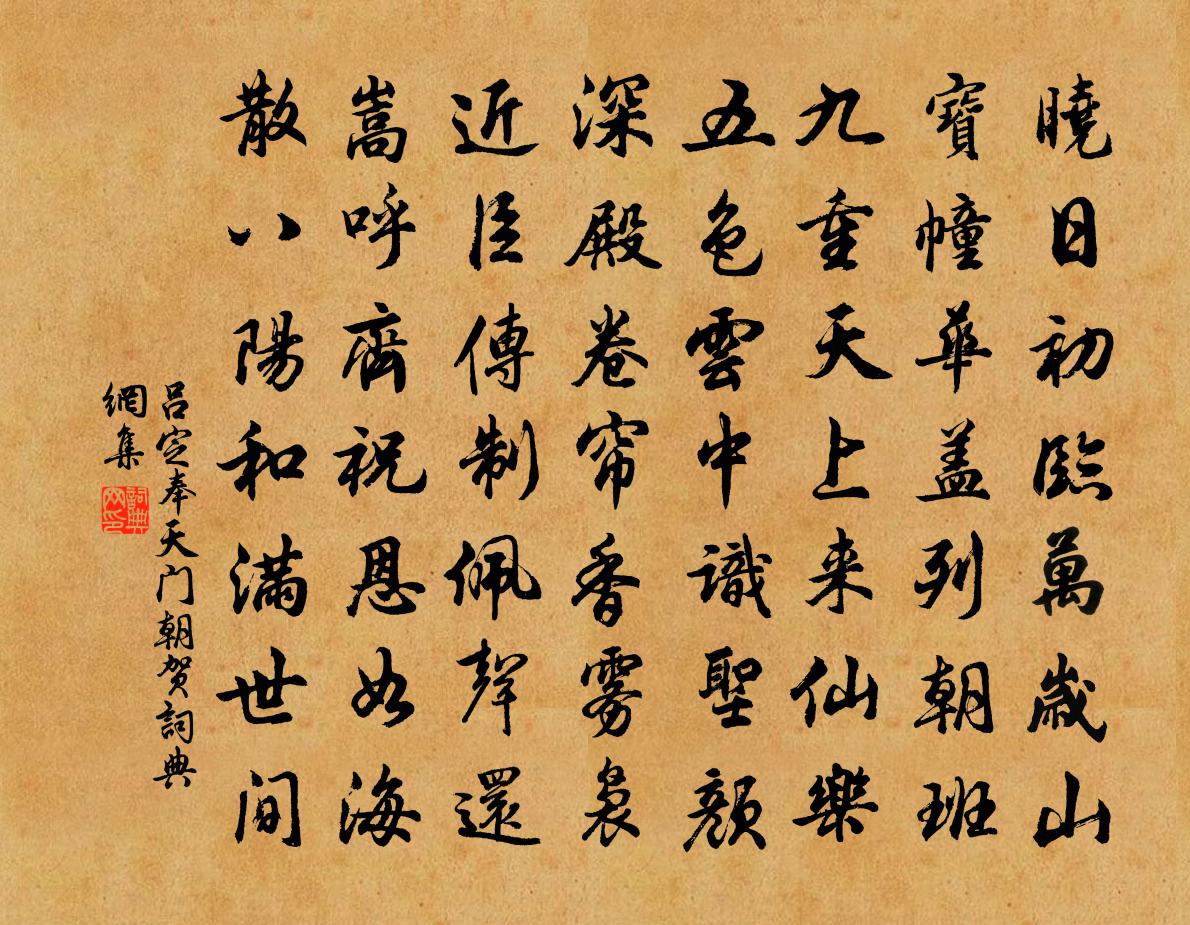 曉日初臨萬歲山
寶幢華蓋列朝班
九重天上来仙樂
五色雲中識聖顔
深殿卷帘香雾裊
近臣傳制佩聲還
嵩呼齊祝恩如海
散八陽和满世間
吕定奉天门朝贺詞典
網集
詞典
网印